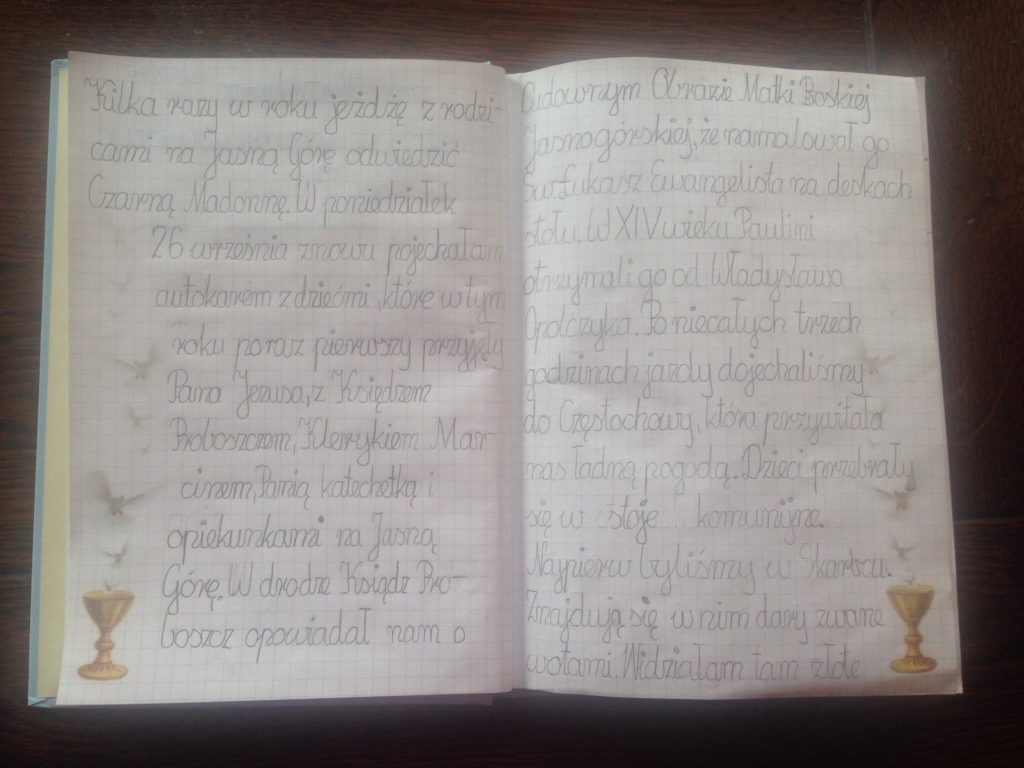 Kilka razy w roku jeżdżę z rodzi-
cami na Jasną Górę odwiedzić
Czarną Madonnę. W poniedziałek
26 września znowu pojechałam
autokarem z dziećmi, które w tym
roku po raz pierwszy przyjęły
Pana Jezusa, z Księdzem
Proboszczem, Klerykiem Mar-
cinem, Panią katechetką i
opiekunkami na Jasną
Górę. W drodze Ksiądz Pro-
boszcz opowiadał nam o
Cudownym Obrazie Matki Boskiej
Jasnogórskiej, że namalował go
św. Łukasz Ewangelista na deskach
stołu. W XIV wieku Paulini
otrzymali go od Władysława
Opolczyka. Po niecałych trzech
godzinach jazdy dojechaliśmy
do Częstochowy, która przywitała
nas ładną pogodą. Dzieci przebrały
się w stroje komunijne.
Najpierw byliśmy w Skarbcu.
Znajdują się w nim dary zwane
wotami. Widziałam tam złote